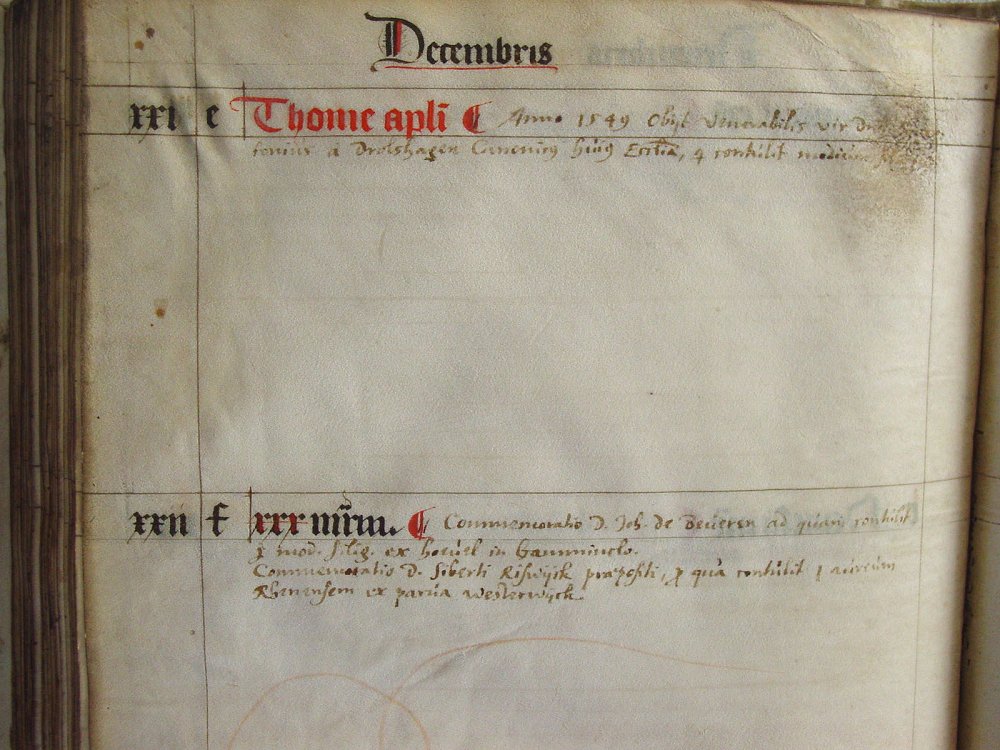 Decembris
xxi e Thome apl̄i ¶ Anno 1549 Obijt Venerabilis vir
à Drolshagen Canonicq huiq Eccl̄iæ, q contulit
xxii f xxx mr̄m. ¶ Commemoratio D. Joh. de Beueren ad quam contulit
mod. silig. ex hoeuel in
Commemoratio D. Siberti Riswijck præpositi, p qua contulit 1 aureum
Rhenensem ex parua Westerwijck.